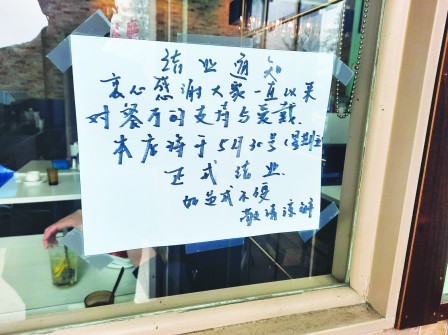 结业通知
衷心感谢大家一直以来
对餐厅的支持与爱戴.
本店将于5月30号(星期五
正式结业.
如造成不便
敬请谅解